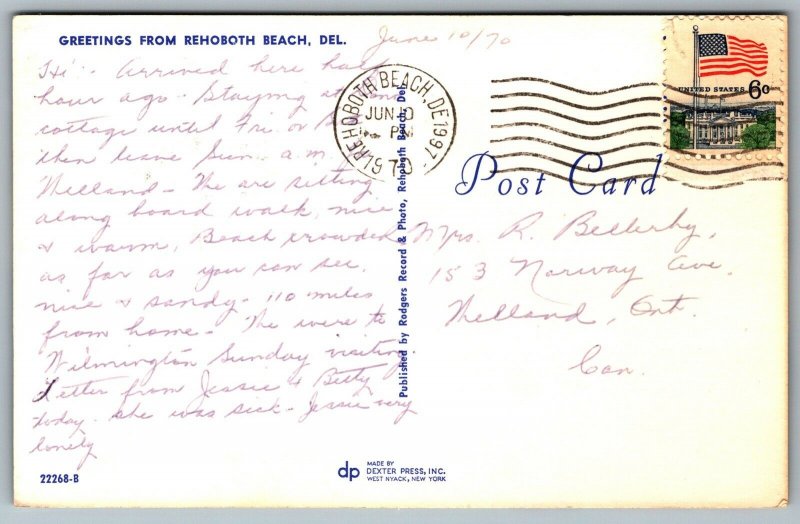 GREETINGS FROM REHOBOTH BEACH, DEL.
June 10/70
Hi - Arrived here half
hour ago - Staying at
cottage until Fri. or
then leave Sun. a.m.
Welland - We are sitting
along board walk, nice
& warm, Beach crowded
as far as you can see,
nice & sandy. 110 miles
from home - We were to
Wilmington Sunday visiting.
Letter from Jessie & Betty
today. She was sick - Jessie very
lonely
22268-B
REHOBOTH BEACH, DE 19971
JUN 10
PM
1970
UNITED STATES 6c
Post Card
Mrs. R. Bellerby,
153 Norway Ave.
Welland, Ont.
Can.
Published by Rodgers Record & Photo, Rehoboth Beach, Del.
dp
MADE BY
DEXTER PRESS, INC.
WEST NYACK, NEW YORK